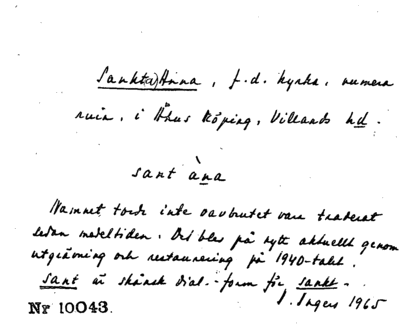 Sankt(a) Anna, f.d. kyrka, numera
ruin, i Åhus Köping, Villands hd.
sant àna
Namnet torde inte oavbrutet vara traderat
sedan medeltiden. Det blev på nytt aktuellt genom
utgrävning och restaurering på 1940-talet.
sant är skånsk dial.-form för sankt-.
I. Ingers 1965
Nr 10043.